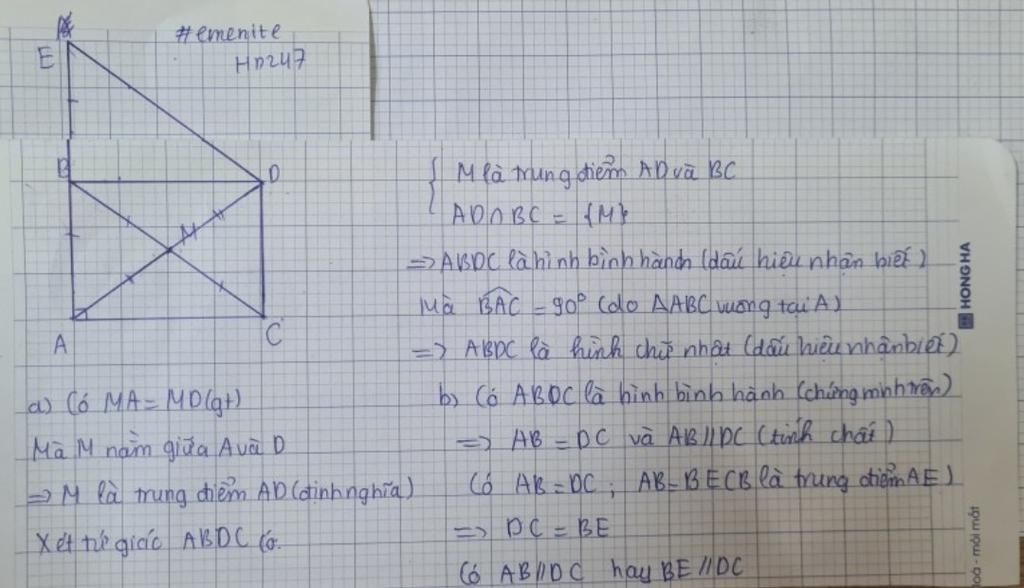 #emenite
HD247
E
B
D
M
A
C
a) Có MA = MD(gt)
Mà M nằm giữa A và D
=> M là trung điểm AD(định nghĩa)
Xét tứ giác ABDC có.
M là trung điểm AD và BC
AD∩BC = {M}
=> ABDC là hình bình hành (dấu hiệu nhận biết)
Mà BAC = 90° (do ΔABC vuông tại A)
=> ABDC là hình chữ nhật (dấu hiệu nhận biết)
b) Có ABDC là hình bình hành (chứng minh trên)
=> AB = DC và AB//DC (tính chất)
Có AB = DC ; AB=BE(B là trung điểm AE)
=> DC = BE
Có AB//DC hay BE//DC
HONG HA